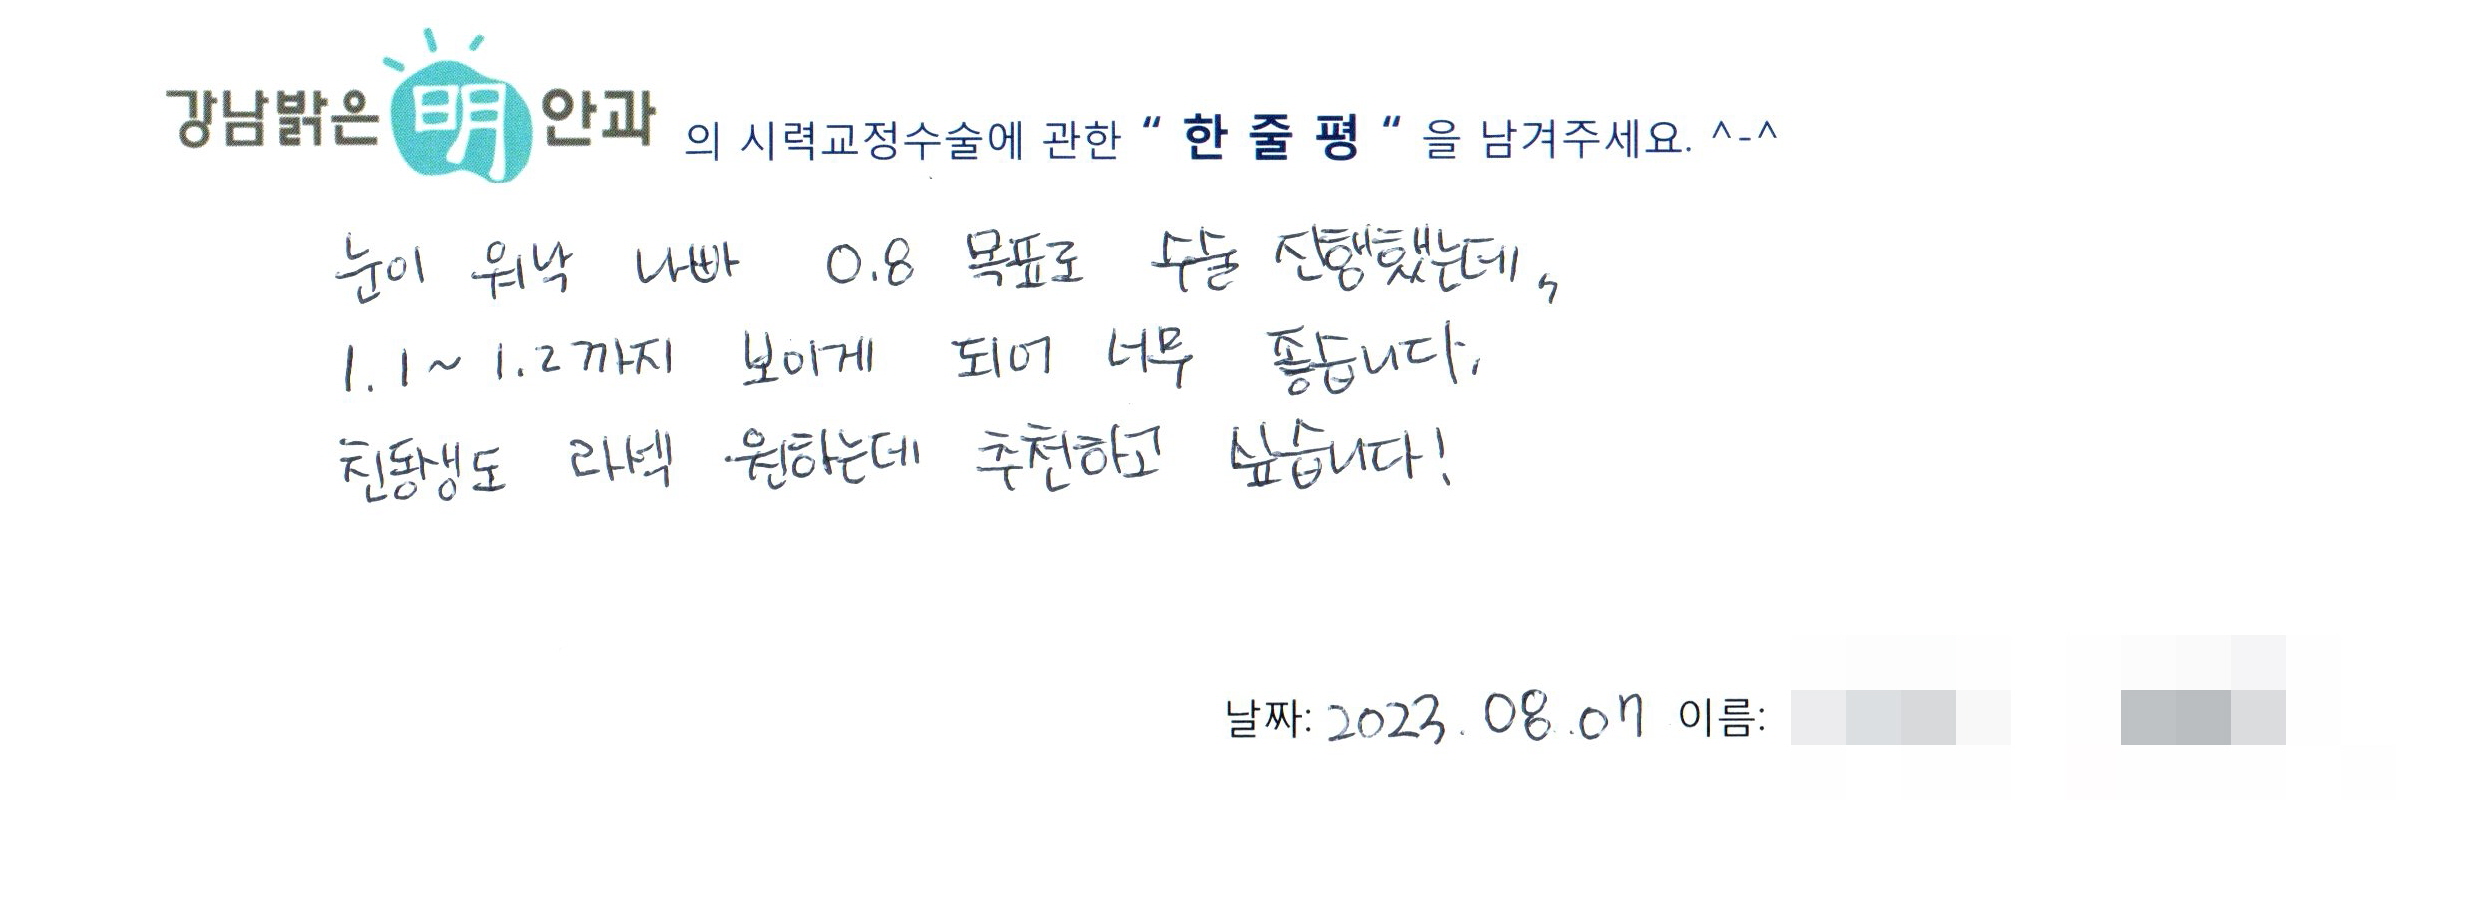 강남밝은 明 안과 의 시력교정수술에 관한 “ 한 줄 평 “ 을 남겨주세요. ^-^
눈이 워낙 나빠 0.8 목표로 수술 진행했는데,
1.1~1.2까지 보이게 되어 너무 좋습니다.
친동생도 라섹 원하는데 추천하고 싶습니다!
날짜: 2023. 08. 07 이름: